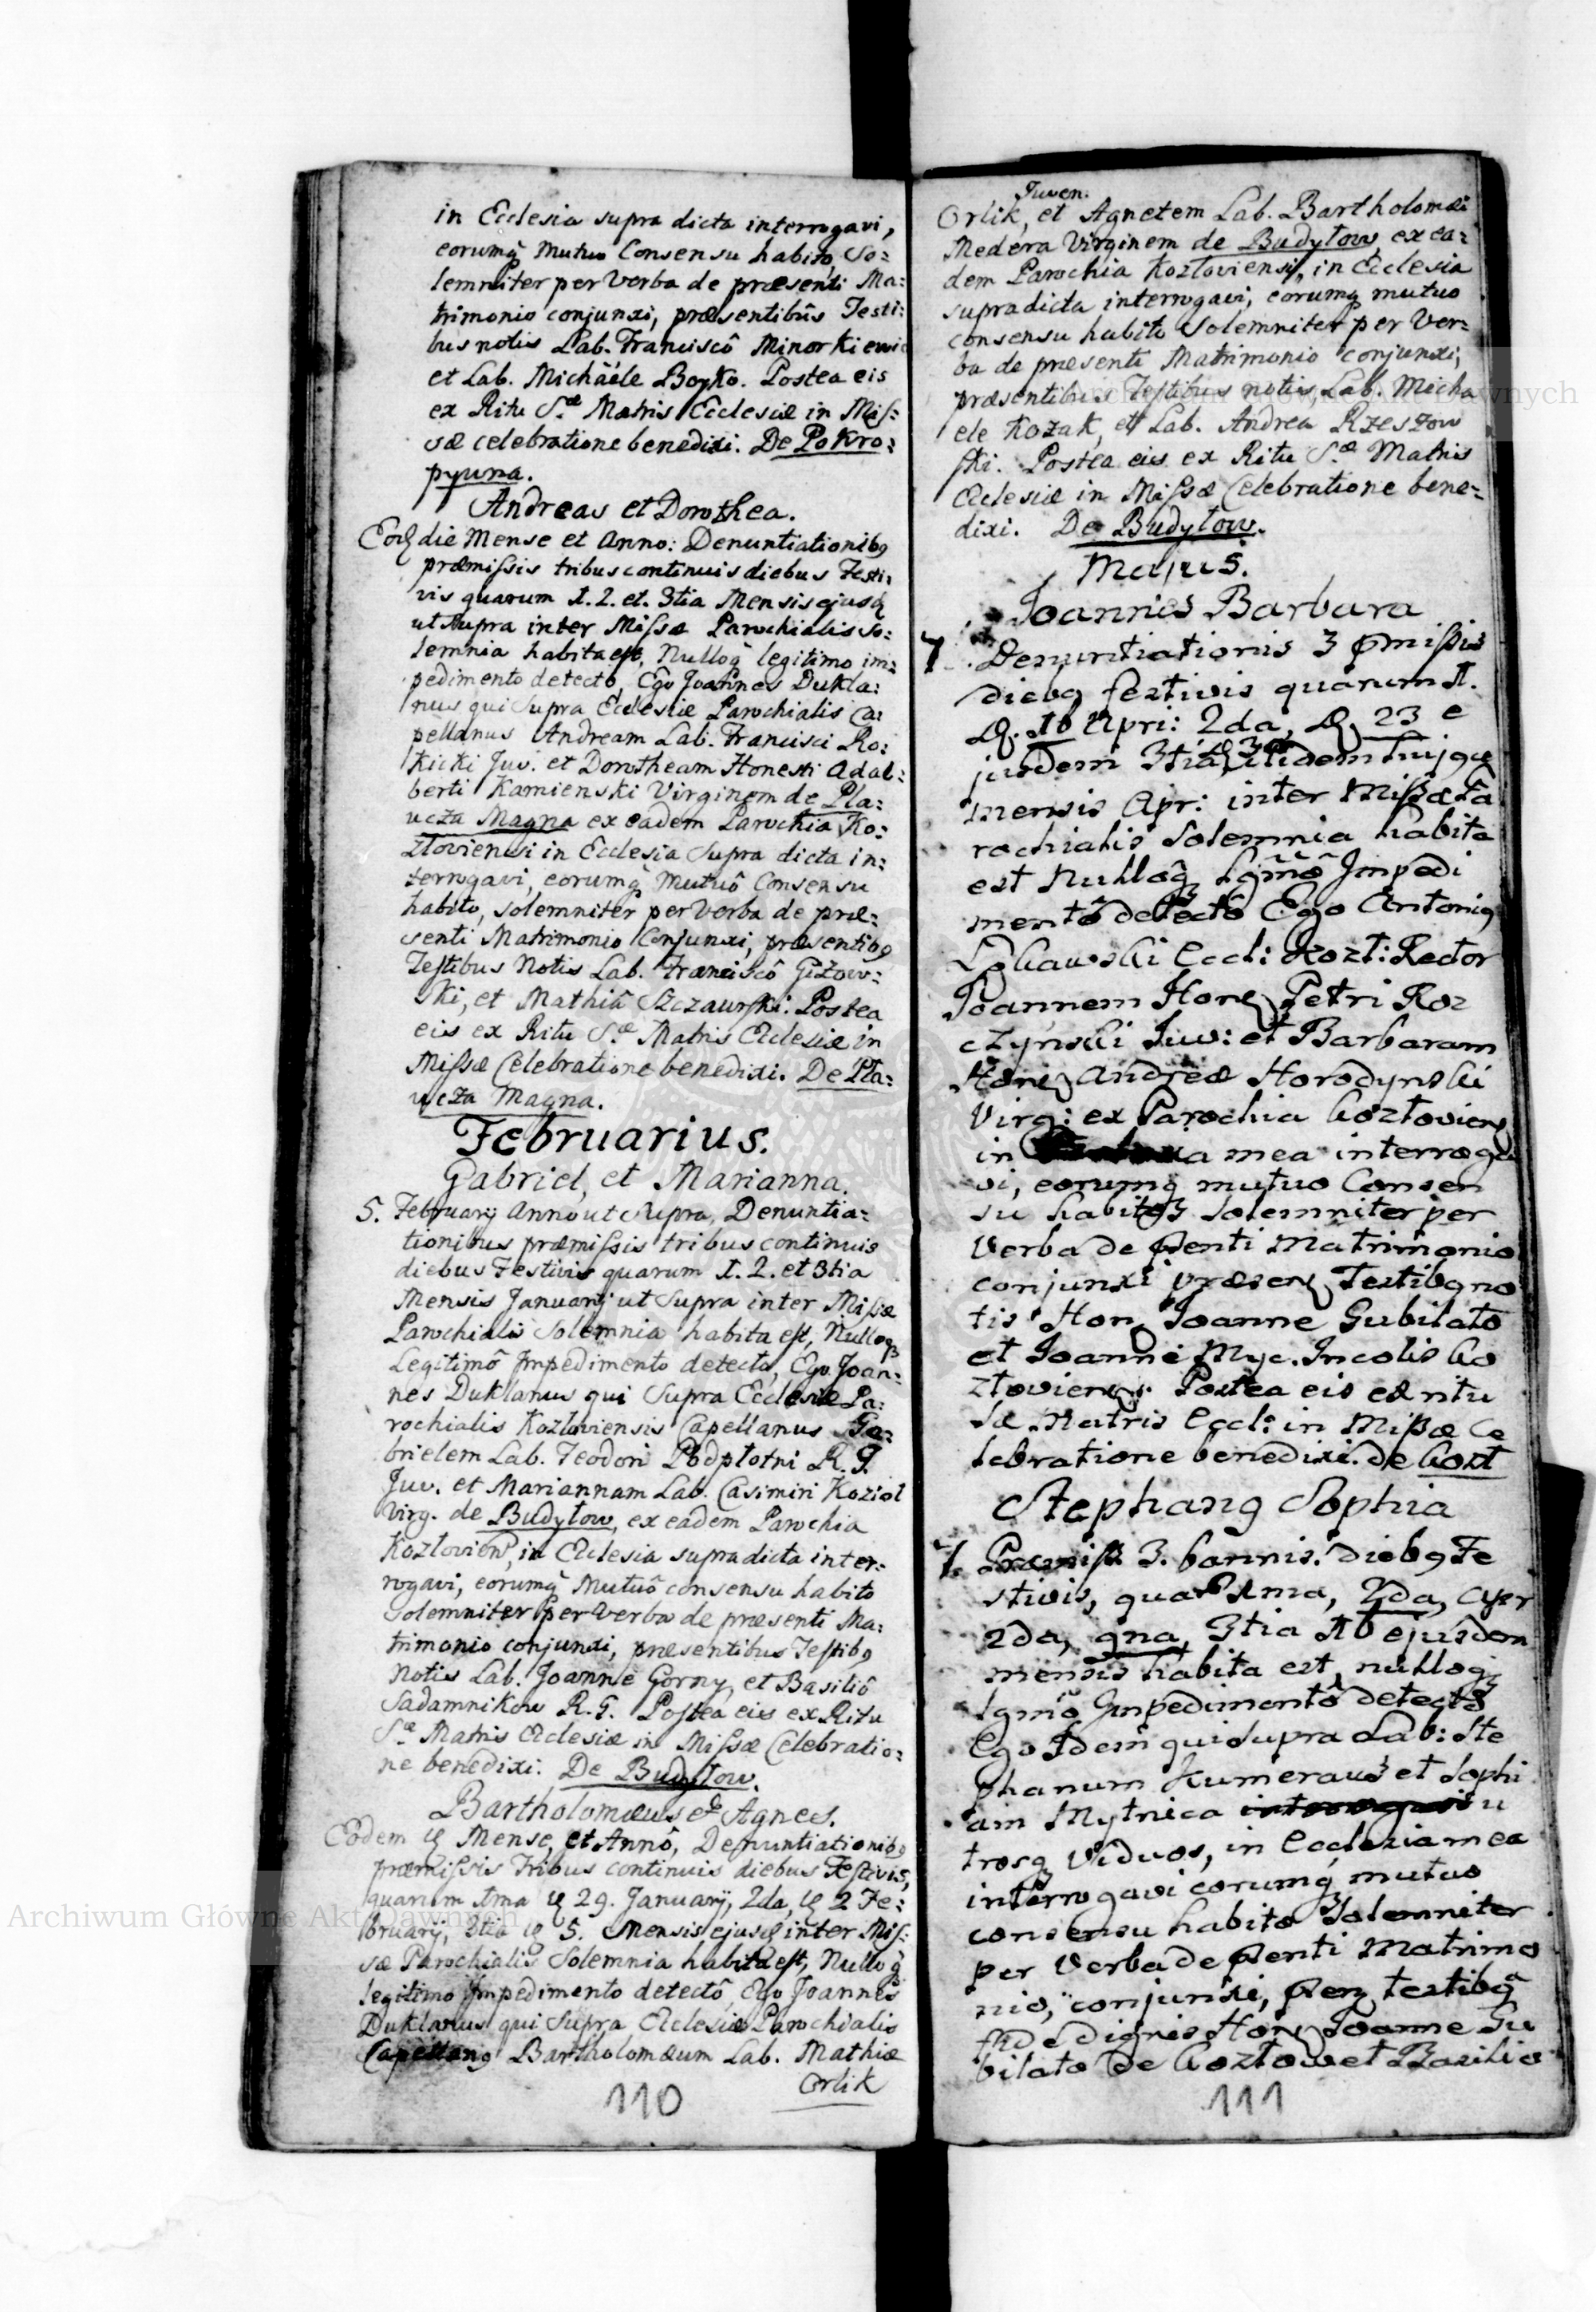 in Ecclesia supra dicta interrogavi,
eorumq̃ Mutuo Consensu habito, So=
lemniter per Verba de præsenti Ma=
trimonio conjunxi, præsentibûs Testi:
bus notis Lab. Franciscô Minorkiewic
et Lab. Michäéle Boyko. Postea eis
ex Ritu S.æ Matris Ecclesiæ in Mis=
sæ celebratione benedixi. De Pokro=
pyuna.
Andreas et Dorothea.
Eod die Mense et Anno: Denuntiationibꝯ
præmissis tribus continuis diebus Festi=
vis quarum 1. 2. et. 3tia Mensis ejusd
ut Supra inter Missæ Parochialis So=
lemnia habita est, Nulloq̃ legitimo im=
pedimento detectô, Ego Joannes Dukla:
nus qui Supra Ecclesiæ Parochialis Ca:
pellanus Andream Lab. Francisci Ro:
kicki Juv. et Dorotheam Honesti Adal=
berti Kamienski Virginem de Pla:
ucza Magna ex eadem Parochia Ko:
złoviensi in Ecclesia Supra dicta in:
terrogavi, eorumq̃ Mutuô Consensu
habito, solemniter per Verba de præ=
senti Matrimonio Conjunxi, præsentibꝯ
Testibus Notis Lab. Franciscô Giżow=
ski, et Mathiâ Szczaurski. Postea
eis ex Ritu S.æ Matris Ecclesiæ in
Missæ Celebratione benedixi. De Pla=
ucza Magna.
Februarius.
Gabriel, et Marianna.
5. Februarÿ Anno ut Supra, Denuntia=
tionibus præmissis tribus continuis
diebus Festivis quarum 1. 2. et 3tia
Mensis Januarÿ ut Supra inter Missæ
Parochialis Solemnia habita est, Nulloqꝫ
Legitimô Impedimento detecto, Ego Joan=
nes Duklanus qui Supra Ecclesiæ Pa:
rochialis Kozłoviensis Capellanus Ga=
brielem Lab. Teodori Podpłotni R. G.
Juv. et Mariannam Lab. Casimiri Kozioł
Virg. de Budyłow, ex eadem Parochia
Kozłovien, in Ecclesia supradicta inter=
rogavi, eorumq̃ Mutuô consensu habito
Solemniter per Verba de præsenti Ma:
trimonio conjunxi, præsentibus Testibꝯ
Notis Lab. Joanne Gorny, et Basiliô
Sadamnikow R. G. Postea eis ex Ritu
S.æ Matris Ecclesiæ in Missæ Celebratio=
ne benedixi. De Budyłow.
Bartholomæus et Agnes.
Eodem Mense, et Annô, Denuntiationibꝯ
præmissis Tribus continuis diebus Festivis,
quarum 1ma 29. Januarÿ, 2da, 2 Fe=
bruarÿ, 3tia 5. Mensis ejusd inter Mis=
sæ Parochialis Solemnia habita est, Nulloq̃
legitimo Impedimento detectô, Ego Joannes
Duklanus qui Supra Ecclesiæ Parochialis
Capellanꝯ Bartholomæum Lab. Mathiæ
Orlik
110
Juven.
Orlik, et Agnetem Lab. Bartholomæi
Medera Virginem de Budyłow, ex ea=
dem Parochia Kozłoviensi, in Ecclesia
supradicta interrogavi, eorumq̃ mutuo
consensu habito Solemniter per Ver=
ba de præsenti Matrimonio conjunxi,
præsentibus Testibus notis, Lab. Micha
ele Kozak, et Lab. Andrea Rzeszow
ski. Postea eis ex Ritu S.æ Matris
Ecclesiæ in Missæ Celebratione bene=
dixi. De Budyłow.
Majus.
Joannes Barbara
7 Denuntiationis 3 pmissis
diebꝯ festivis quarum 1.
16 Apri: 2da, 23 e
jusdem 3tia itidem hujque
mensis Apr: inter Missæ Pa
rochialis Solemnia habita
est Nulloqꝫ Lgmô Impedi
mentô detectô Ego Antoniꝯ
Eccl: Kozł: Rector
Joannem Hon Petri Roz
czyński Juv: et Barbaram
Hon Andreæ Horodynski
Virg: ex Parochia Kozłovien
in a mea interroga
vi, eorumq̃ mutuo Consen
su habito Solemniter per
Verba de pſenti Matrimonio
conjunxi præsen Testibꝯ no
tis Hon Joanne Gubilato
et Joanne Myc. Incolis Ko
złovien. Postea eis ex ritu
Sæ Matris Eccl: in Missæ Ce
lebratione benedixi. de Kozł
Stephanꝯ Sophia
7. Præmiss 3. bannis. diebꝯ Fe
stivis, quar 1ma, 2da, Apr
2da, 9na, 3tia 16 ejusdem
mensis habita est, nulloqꝫ
lgmô Impedimentô detectô
Ego Idem qui Supra Lab: Ste
phanum Kumeraus et Sophi
am Mytnica interrogavi u
trosqꝫ Viduos, in Ecclesia mea
interrogavi eorumq̃ mutuo
consensu habito Solemniter
per Verba de pſenti Matrimo
nio, conjunxi, pſen testibꝯ
fide dignis Hon Joanne Gu
bilato de Kozłow et Basilio
111
Archiwum Główne Akt Dawnych